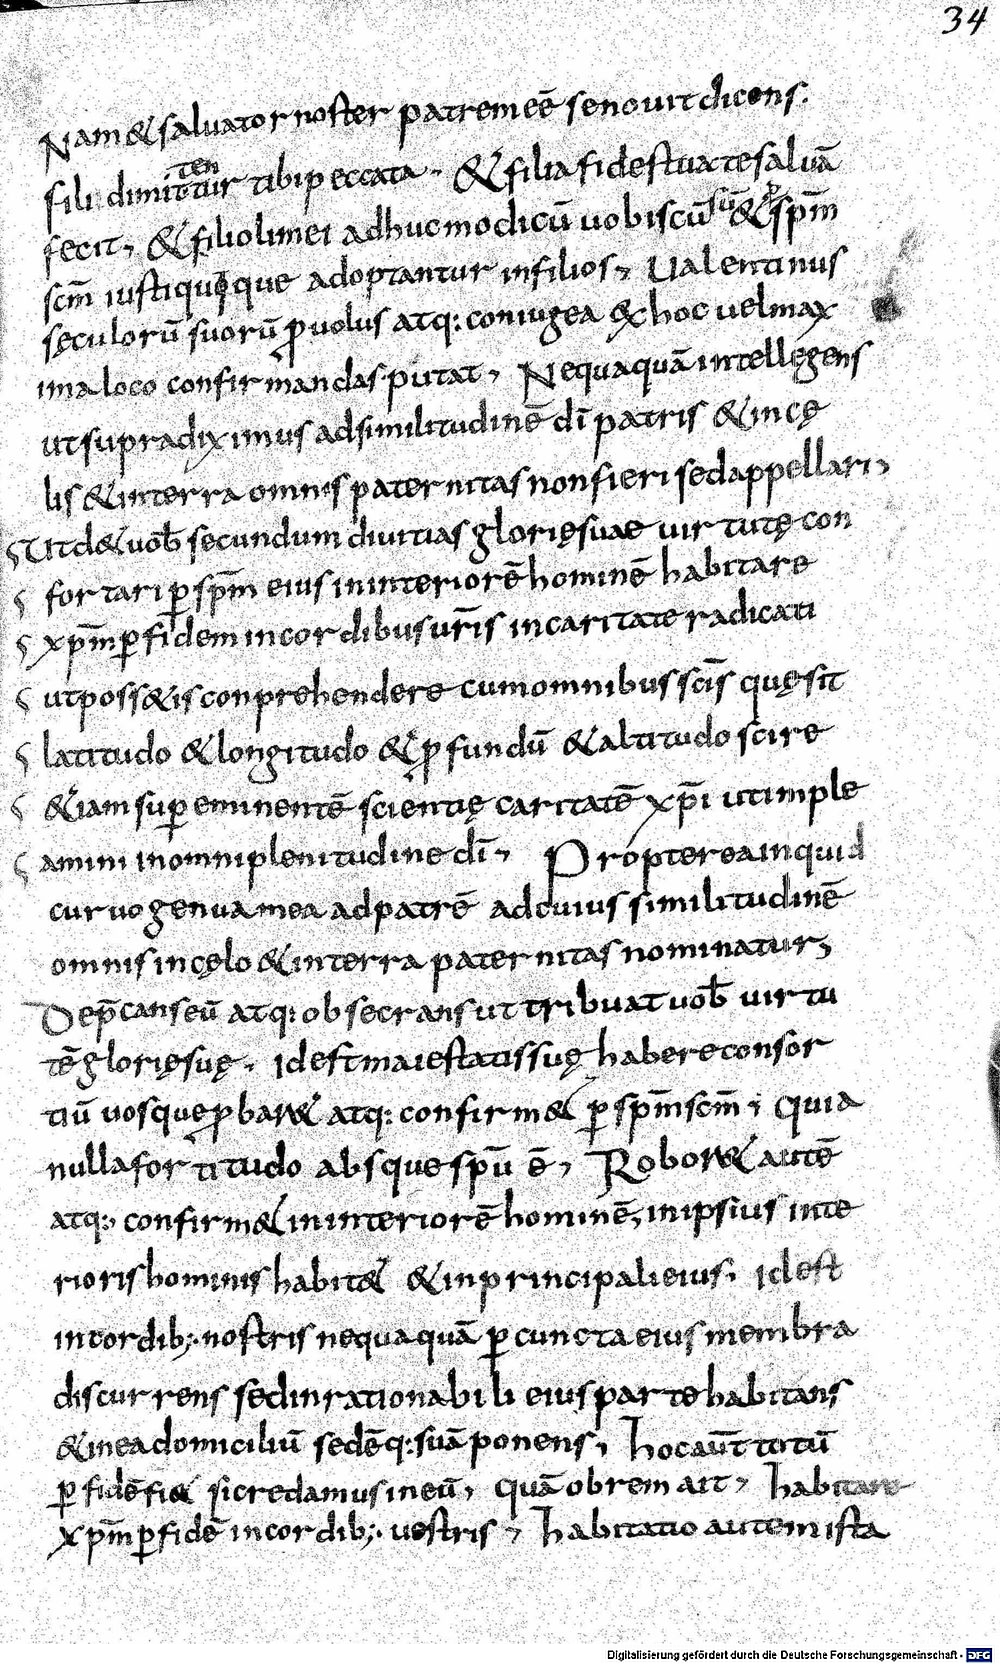 34
Nam & saluator noster patrem eē se nouit dicens.
ten
fili dimittur tibi peccata. & filia fides tua te saluā
fecit, & filioli mei adhuc modicū uobiscū sū & spm̄
scm̄ iusti quique adoptantur in filios, Ualentinus
sęculorū suorū ꝓuolus atq: coniugea & hoc uel max
ima loco confirmandas putat, Nequaquā intellegens
ut supra diximus ad similitudinē dī patris & in cę
lis & in terra omnis paternitas non fieri sed appellari,
Ut d& uob̄ secundum diuitias glorię suae uirtutę con
fortari ꝑ spm̄ eius in interiorē hominē habitare
xpm̄ ꝑ fidem in cordibus ur̄is in caritate radicati
ut poss&is conprehendere cum omnibus scīs quę sit
latitudo & longitudo & ꝓfundū & altitudo scire
&iam suꝑeminentē scientię caritatē xpī ut imple
amini in omni plenitudine dī, Propterea inquid
curuo genua mea ad patrē ad cuius similitudinē
omnis in cęlo & in terra paternitas nominatur,
Dep̄cans eū atq: obsecrans ut tribuat uob̄ uirtu
tē glorię suę. id est maiestatis suę habere consor
tiū uosque ꝓbar& atq: confirm& ꝑ spm̄ scm̄; quia
nulla fortitudo absque spū ē, Robor& autē
atq:, confirm& in interiorē hominē, in ipsius inte
rioris hominis habit& & in principali eius, id est
in cordib;. nostris nequaquā ꝑ cuncta eius membra
discurrens sed in rationabili eius parte habitans
& in ea domiciliū sedēq: suā ponens, hoc aūt totū
ꝑ fidē fi& si credamus in eū, quā obrem ait, habitare
xpm̄ ꝑ fidē in cordib;. uestris, habitatio autem ista
Digitalisierung gefördert durch die Deutsche Forschungsgemeinschaft - DFG